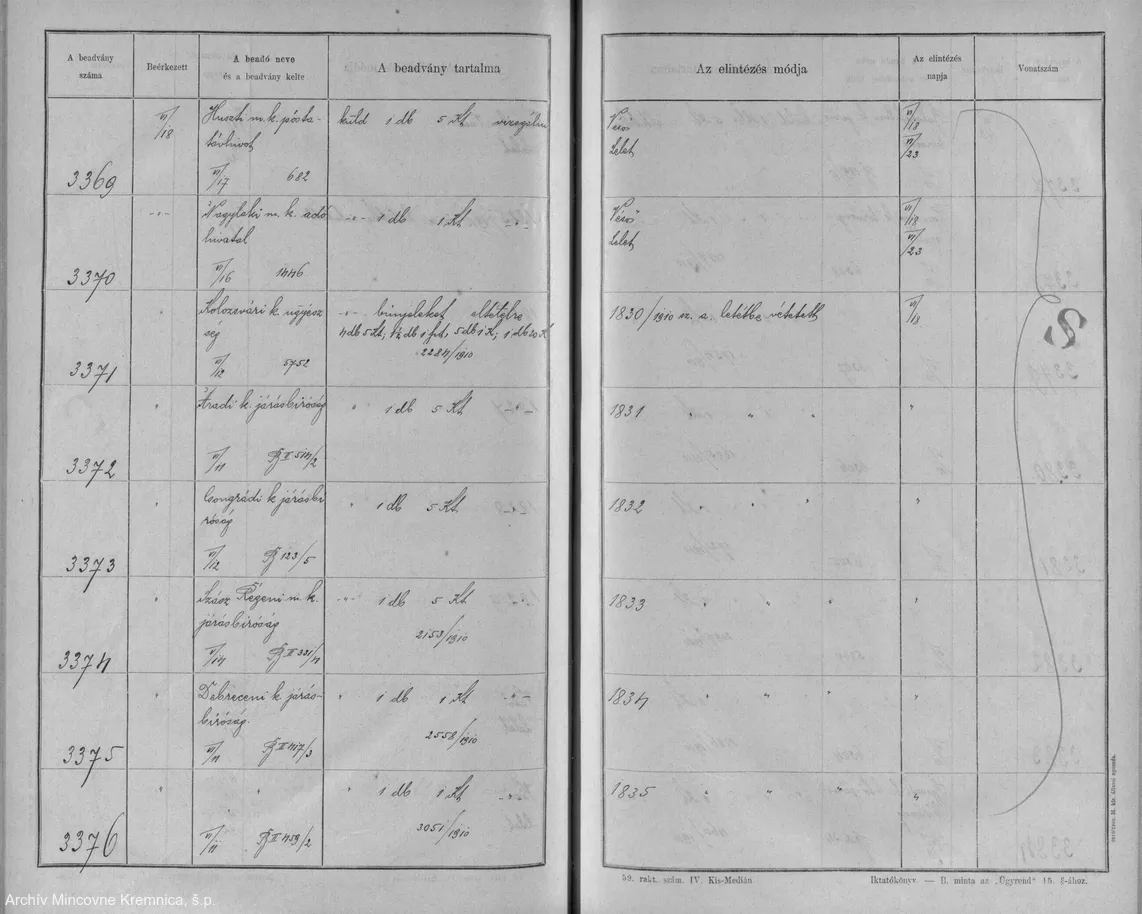 A beadvány száma
Beérkezett
A beadó neve és a beadvány kelte
A beadvány tartalma
Az elintézés módja
Az elintézés napja
Vonatszám
3369
VI/18
Huszti m. k. posta-
távhivat
VI/17 682
küld 1 db 5 Kt vizsgálni
Verő
Lelet
VI/18
VI/23
3370
-"-
Nagylaki m. k. adó
hivatal
VI/16 1446
-"- 1 db 1 Kt -"-
Verő
Lelet
VI/18
VI/23
3371
Kolozsvári k. ügyész
ség
VI/12 5752
-"- bűnjeleket eltételre
4 db 5 Kt, 1/2 db 1 frt, 5 db 1 K; 1 db 20 K
2284/1910
1830/1910 sz. a. letétbe vétetett
VI/18
3372
"
Aradi k. járásbíróság
VI/11 B II 514/2
" 1 db 5 Kt -"-
1831 " " "
"
3373
"
Csongrádi k. járásbí
róság
VI/12 B 123/5
" 1 db 5 Kt.
1832 " "
"
3374
"
Szász Régeni m. k.
járásbíróság
VI/14 B II 331/4
-"- 1 db 5 Kt
2153/1910
1833 " " "
"
3375
"
Debreceni k. járás-
bíróság.
VI/11 B II 417/3
" 1 db 1 Kt -"-
2558/1910
1834 " " "
"
3376
"
"
VI/11 B II 459/2
" 1 db 1 Kt -"-
3051/1910
1835 " " "
"
59. rakt. szám. IV. Kis-Medián
Iktatókönyv. — B. minta az „Ügyrend" 15. §-ához.
Archív Mincovne Kremnica, š.p.